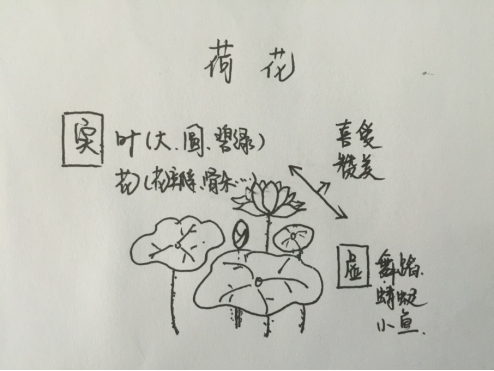 荷花
实 叶(大、圆、碧绿)
花(花瓣、骨朵…)
喜爱
赞美
虚 舞蹈、
蜻蜓
小鱼.